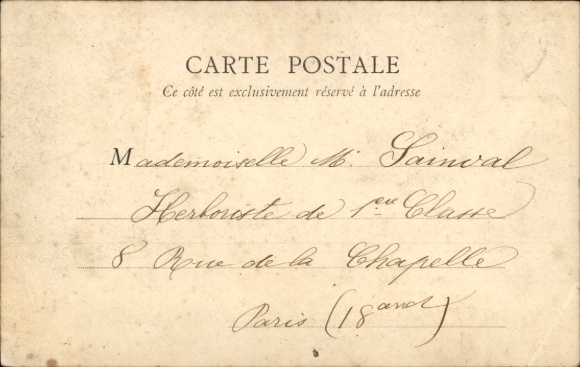 CARTE POSTALE
Ce côté est exclusivement réservé à l'adresse
Mademoiselle M. Sainval
Herboriste de 1ere Classe
8 Rue de la Chapelle
Paris (18 arrot)